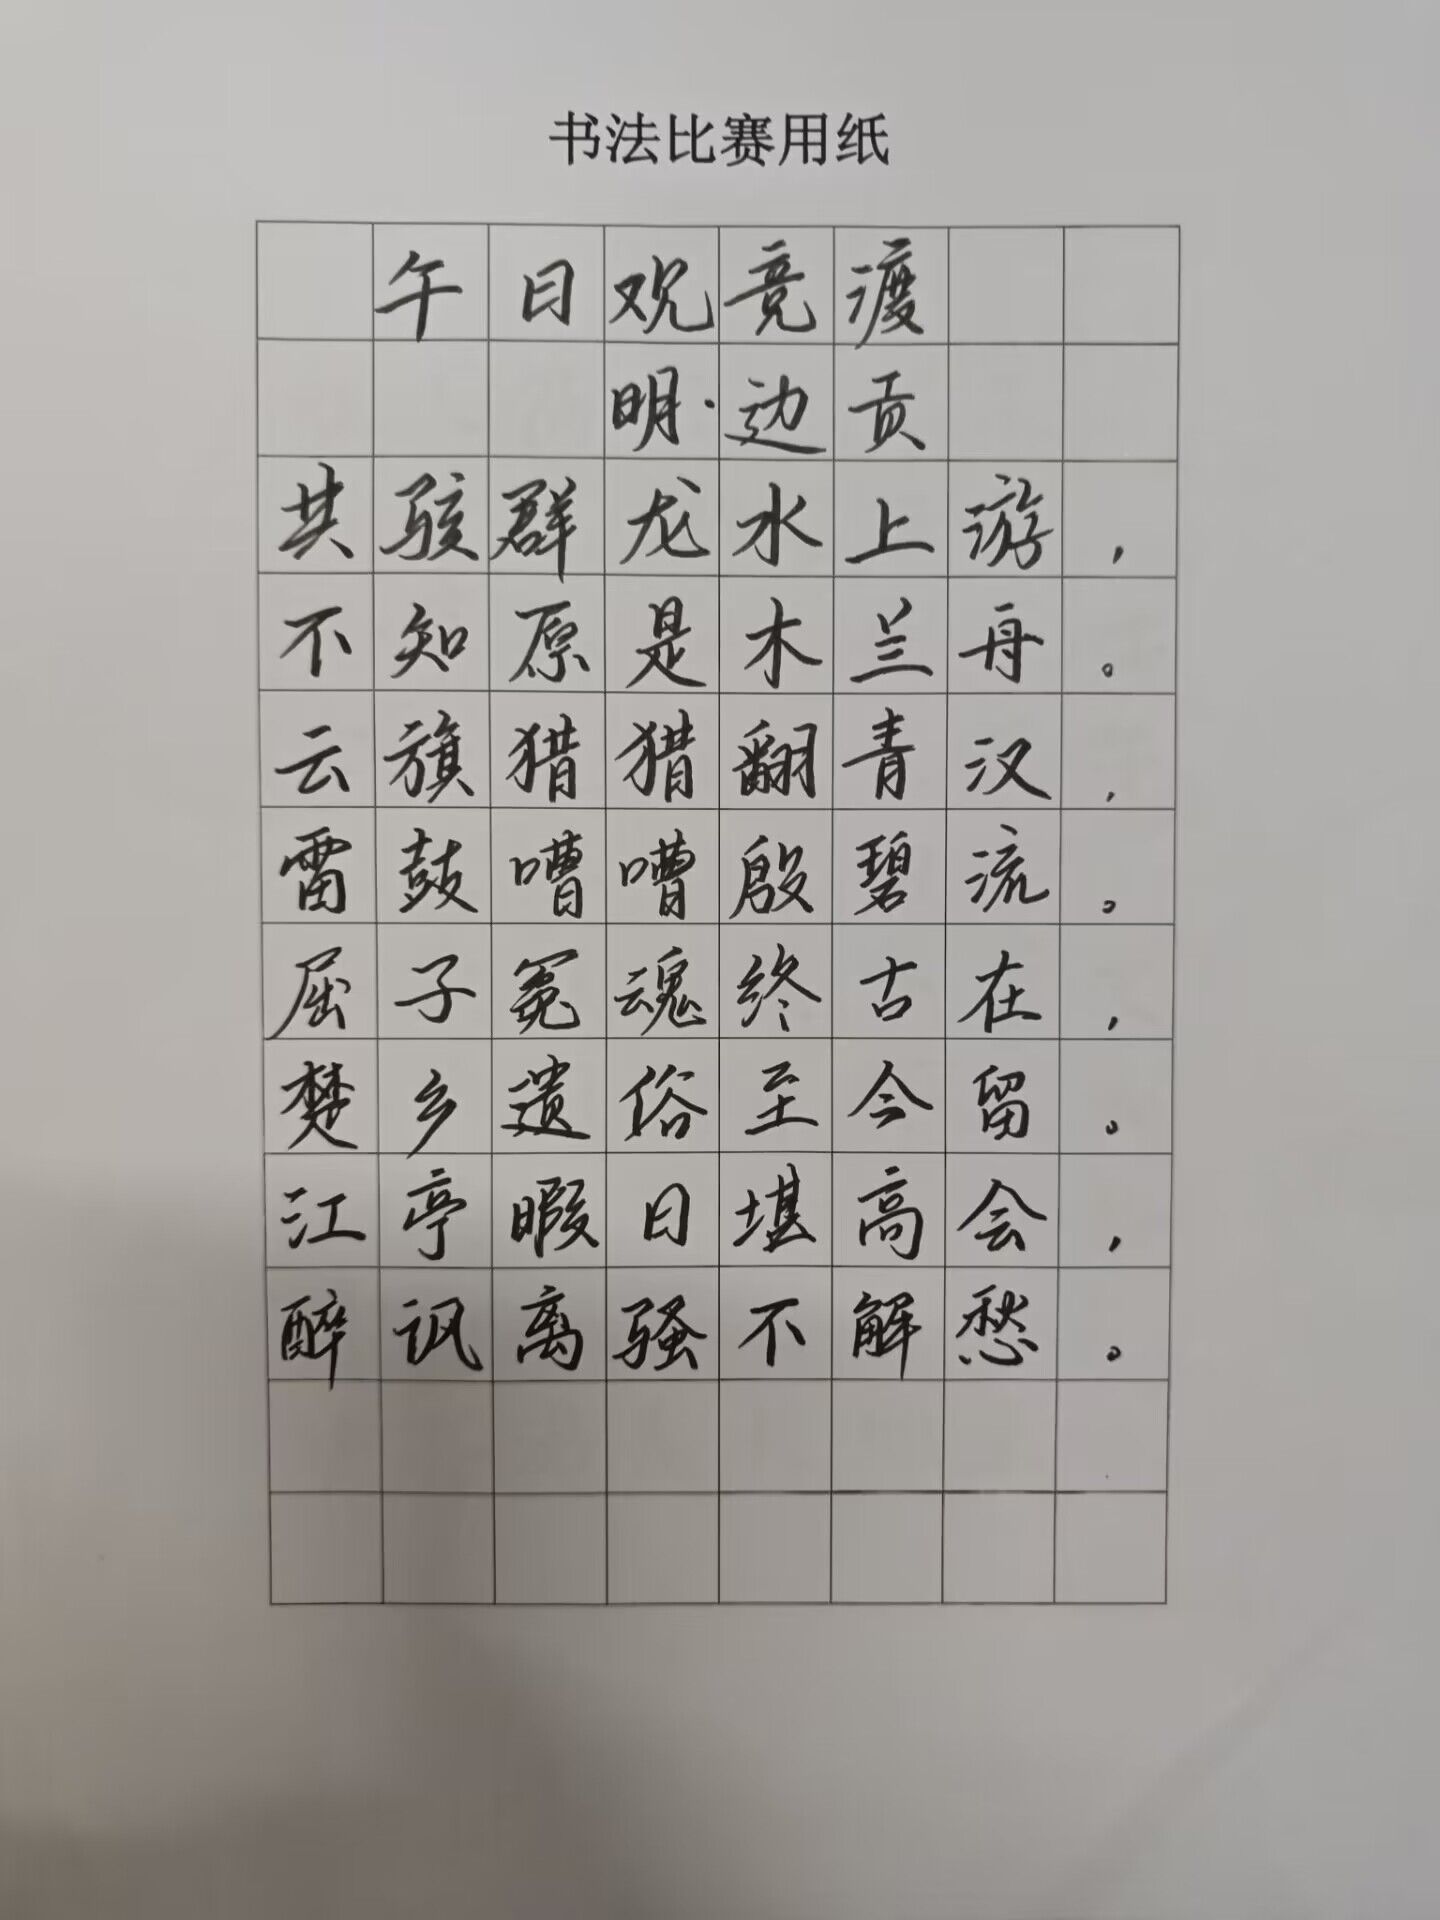 书法比赛用纸
午日观竞渡
明·边贡
共骇群龙水上游，
不知原是木兰舟。
云旗猎猎翻青汉，
雷鼓嘈嘈殷碧流。
屈子冤魂终古在，
楚乡遗俗至今留。
江亭暇日堪高会，
醉讽离骚不解愁。